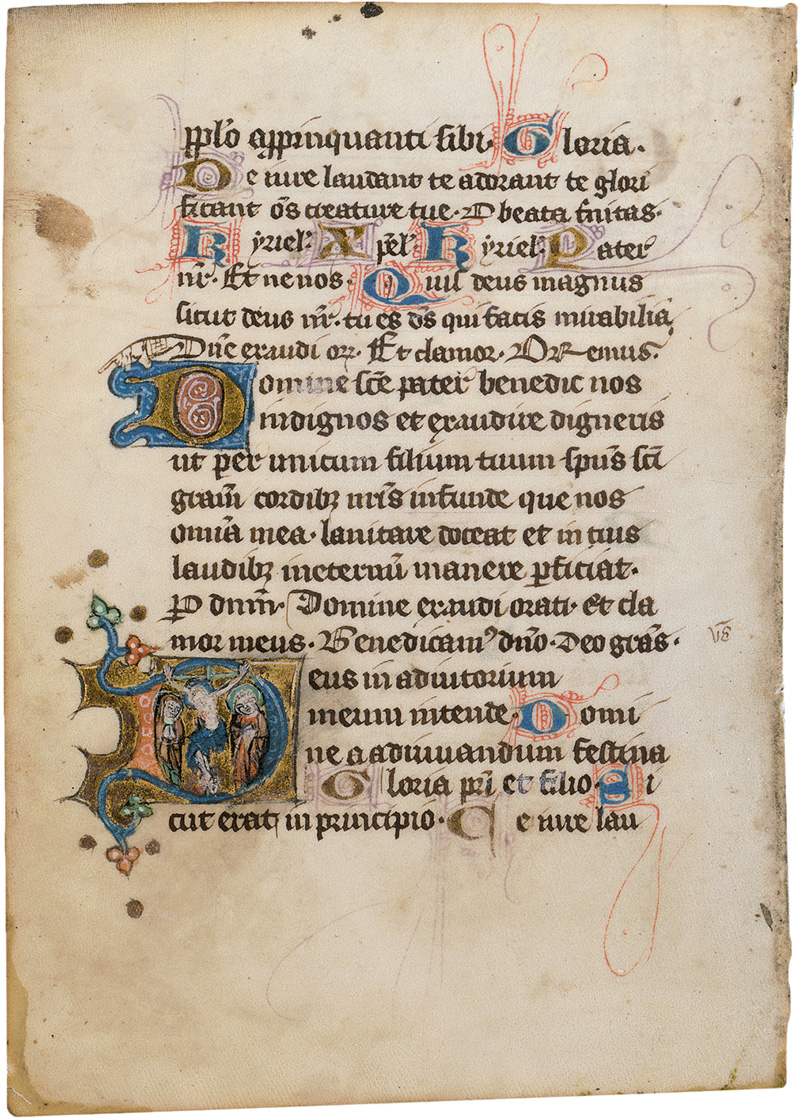 pplo appinquanti sibi. Gloria.
Te iure laudant te adorant te glori
ficant oēs creature tue. O beata trinitas.
Kyriel. Xpel. Kyriel. Pater
nr̄. Et ne nos. Quis deus magnus
sicut deus nr̄. tu es ds̄ qui facis mirabilia,
Dn̄e exaudi or. Et clamor. Oremus.
Domine sc̄e pater benedic nos
indignos et exaudire digneris
ut per unicum filium tuum spūs sc̄i
gram̄ cordibꝫ nr̄is infunde que nos
omīa mea. sanitare doceat et in tuis
laudibꝫ in eternū manere ꝑficiat.
P dnm̄. Domine exaudi orati. et cla
mor meus. Benedicamꝰ dn̄o. Deo gr̄as.
vs̄
Deus in adiutorium
meum intende. Domi
ne a adiuuandum festina
Gloria pr̄i et filio. Si
cut erat in principio. Te iure lau